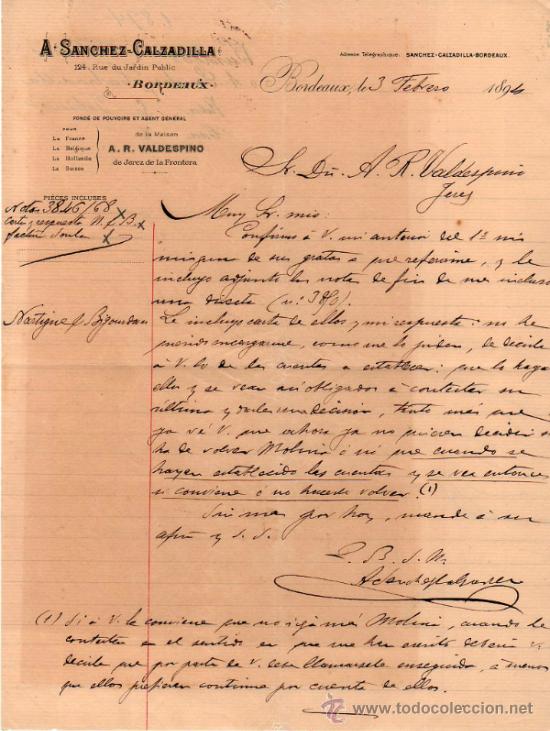 A. SANCHEZ-CALZADILLA
124, Rue du Jardin Public
BORDEAUX
Adresse Télégraphique: SANCHEZ-CALZADILLA-BORDEAUX.
Bordeaux, le 3 Febrero 1894
FONDÉ DE POUVOIRS ET AGENT GÉNÉRAL
POUR
La France
La Belgique
La Hollande
La Suisse
de la Maison
A. R. VALDESPINO
de Jerez de la Frontera
Sr. Dn. A. R. Valdespino
Jerez
PIÈCES INCLUSES
Notas 3846/68 x
Carta y respuesta N. f. B. x
factura x
Muy Sr. mio:
Confirmo á V. mi anterior del 1º
ninguna de sus gratas á que referirme, y le
incluyo adjunto las notas de
una (nº 386).
Nartigue & Bigourdan
Le incluyo carta de ellos y mi respuesta: no he
querido encargarme, como me lo piden, de decirle
á V. lo de las cuentas á establecer: que lo hagan
ellos y se vean así obligados á contestar su
última y darle una decisión, tanto mas que
ya vé V. que ahora ya no quieren decidir si
ha de volver Molini ó no que cuando se
hayan establecido las cuentas y se vea entonces
si conviene ó no hacerle volver. (1)
Sin mas por hoy, mande á su
afmo y S. S.
Q. B. S. M.
(1) Si á V. le conviene que no siga más Molini, cuando
contesten en el sentido en que me han escrito deberá V.
decirle que por parte de V. debe llamarsele enseguida, á menos
que ellos prefieran continue por cuenta de ellos.
todocoleccion
www.todocoleccion.net